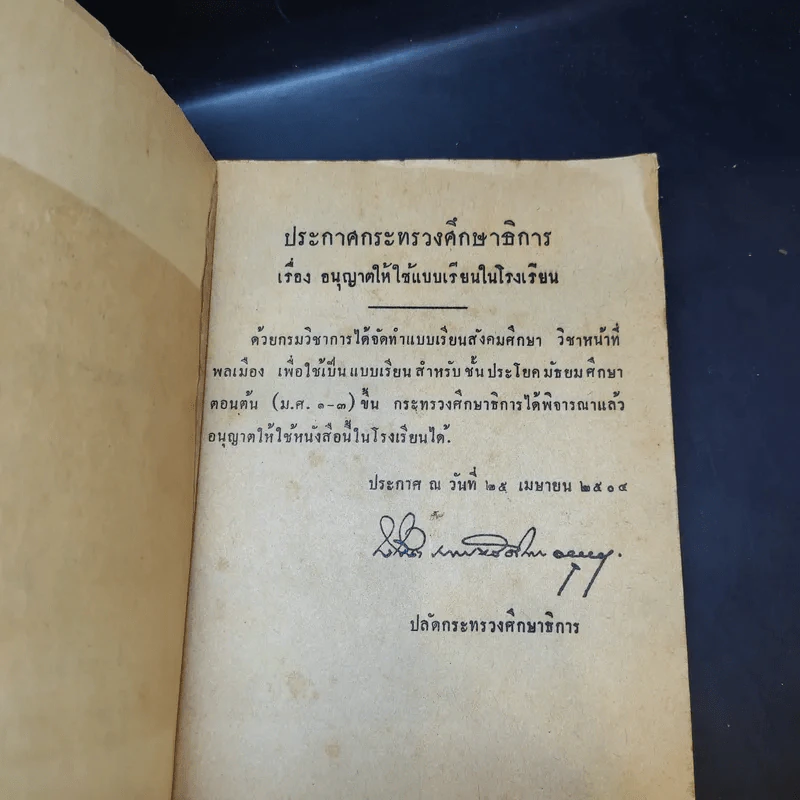 ประกาศกระทรวงศึกษาธิการ
เรื่อง อนุญาตให้ใช้แบบเรียนในโรงเรียน
ด้วยกรมวิชาการได้จัดทำแบบเรียนสังคมศึกษา วิชาหน้าที่
พลเมือง เพื่อใช้เป็นแบบเรียนสำหรับชั้นประโยคมัธยมศึกษา
ตอนต้น (ม.ศ. ๑-๓) ขึ้น กระทรวงศึกษาธิการได้พิจารณาแล้ว
อนุญาตให้ใช้หนังสือนี้ในโรงเรียนได้.
ประกาศ ณ วันที่ ๒๕ เมษายน ๒๕๐๔
ปลัดกระทรวงศึกษาธิการ